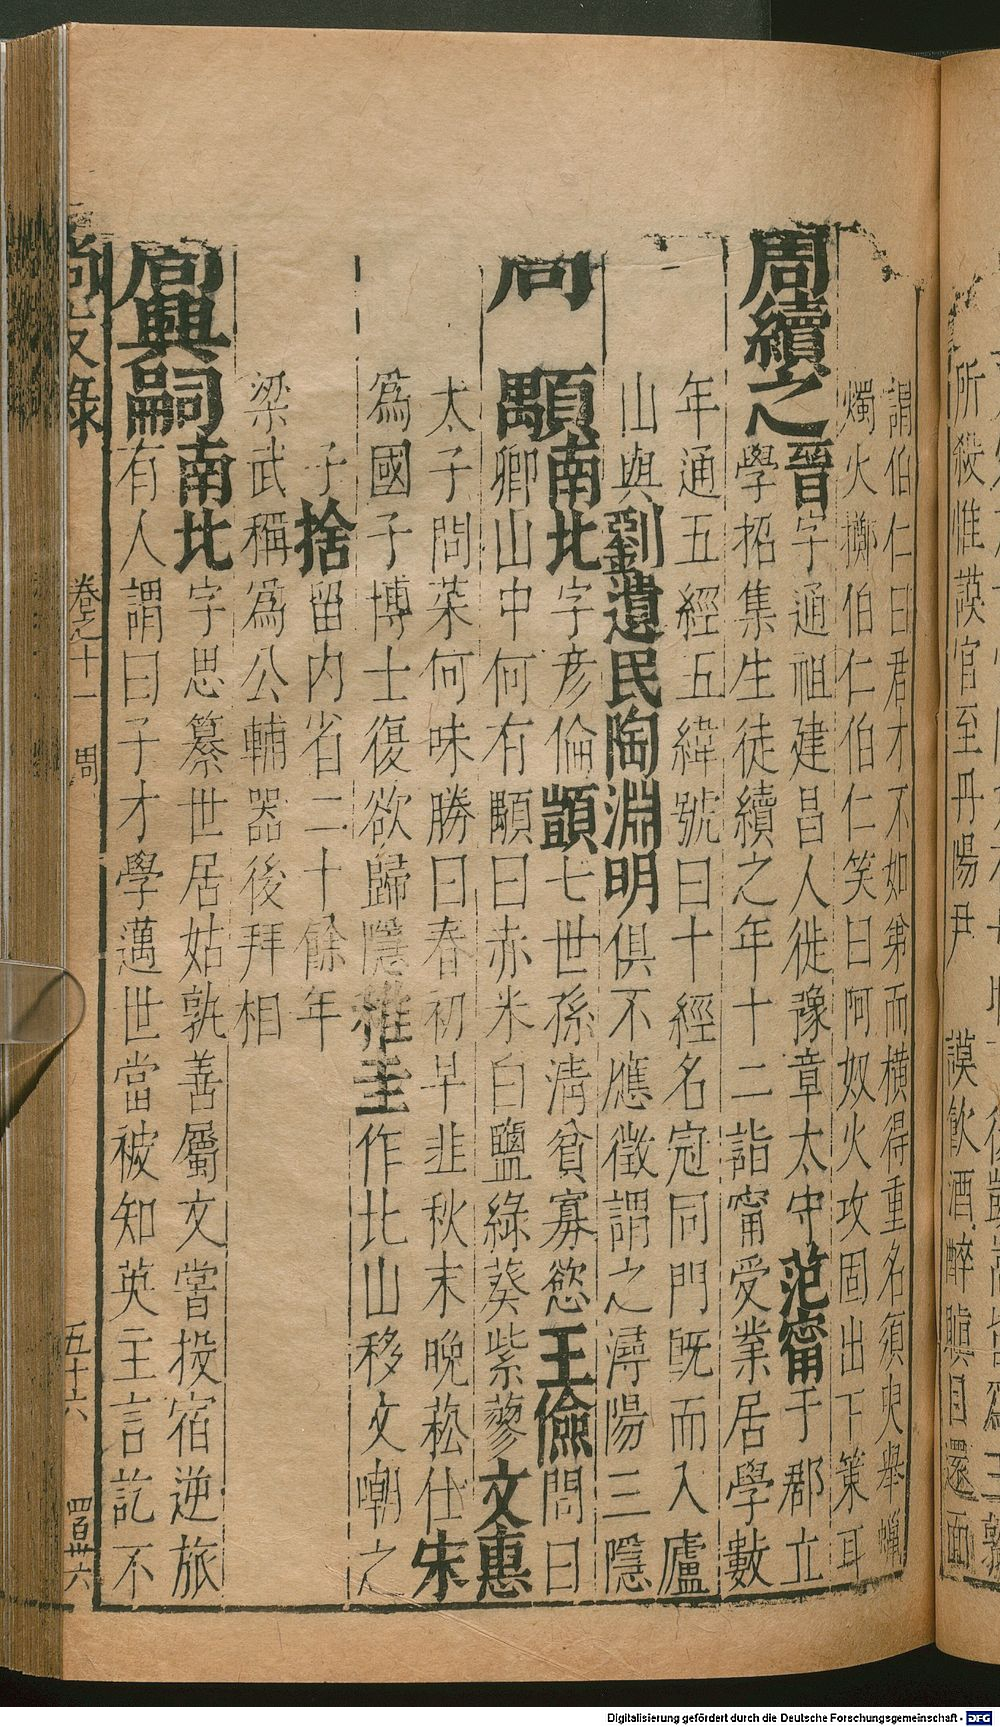 所殺惟謨官至丹陽尹 謨飲酒醉瞋目還面
謂伯仁曰君才不如弟而橫得重名須臾舉蠟
燭火擲伯仁伯仁笑曰阿奴火攻固出下策耳
周續之晉字通祖建昌人徙豫章太守范甯于郡立
學招集生徒續之年十二詣甯受業居學數
年通五經五緯號曰十經名冠同門旣而入廬
山與劉遺民陶淵明俱不應徵謂之潯陽三隱
周顒南北字彥倫顗七世孫淸貧寡慾王儉問曰
卿山中何有顒曰赤米白鹽綠葵紫蓼文惠
太子問菜何味勝曰春初早韭秋末晚菘仕宋
爲國子博士復欲歸隱稚圭作北山移文嘲之
子捨留内省二十餘年
梁武稱爲公輔器後拜相
周興嗣南北字思纂世居姑孰善屬文嘗投宿逆旅
有人謂曰子才學邁世當被知英主言訖不
尙友錄 卷之十一 周 五十六 四百卅六
Digitalisierung gefördert durch die Deutsche Forschungsgemeinschaft - DFG